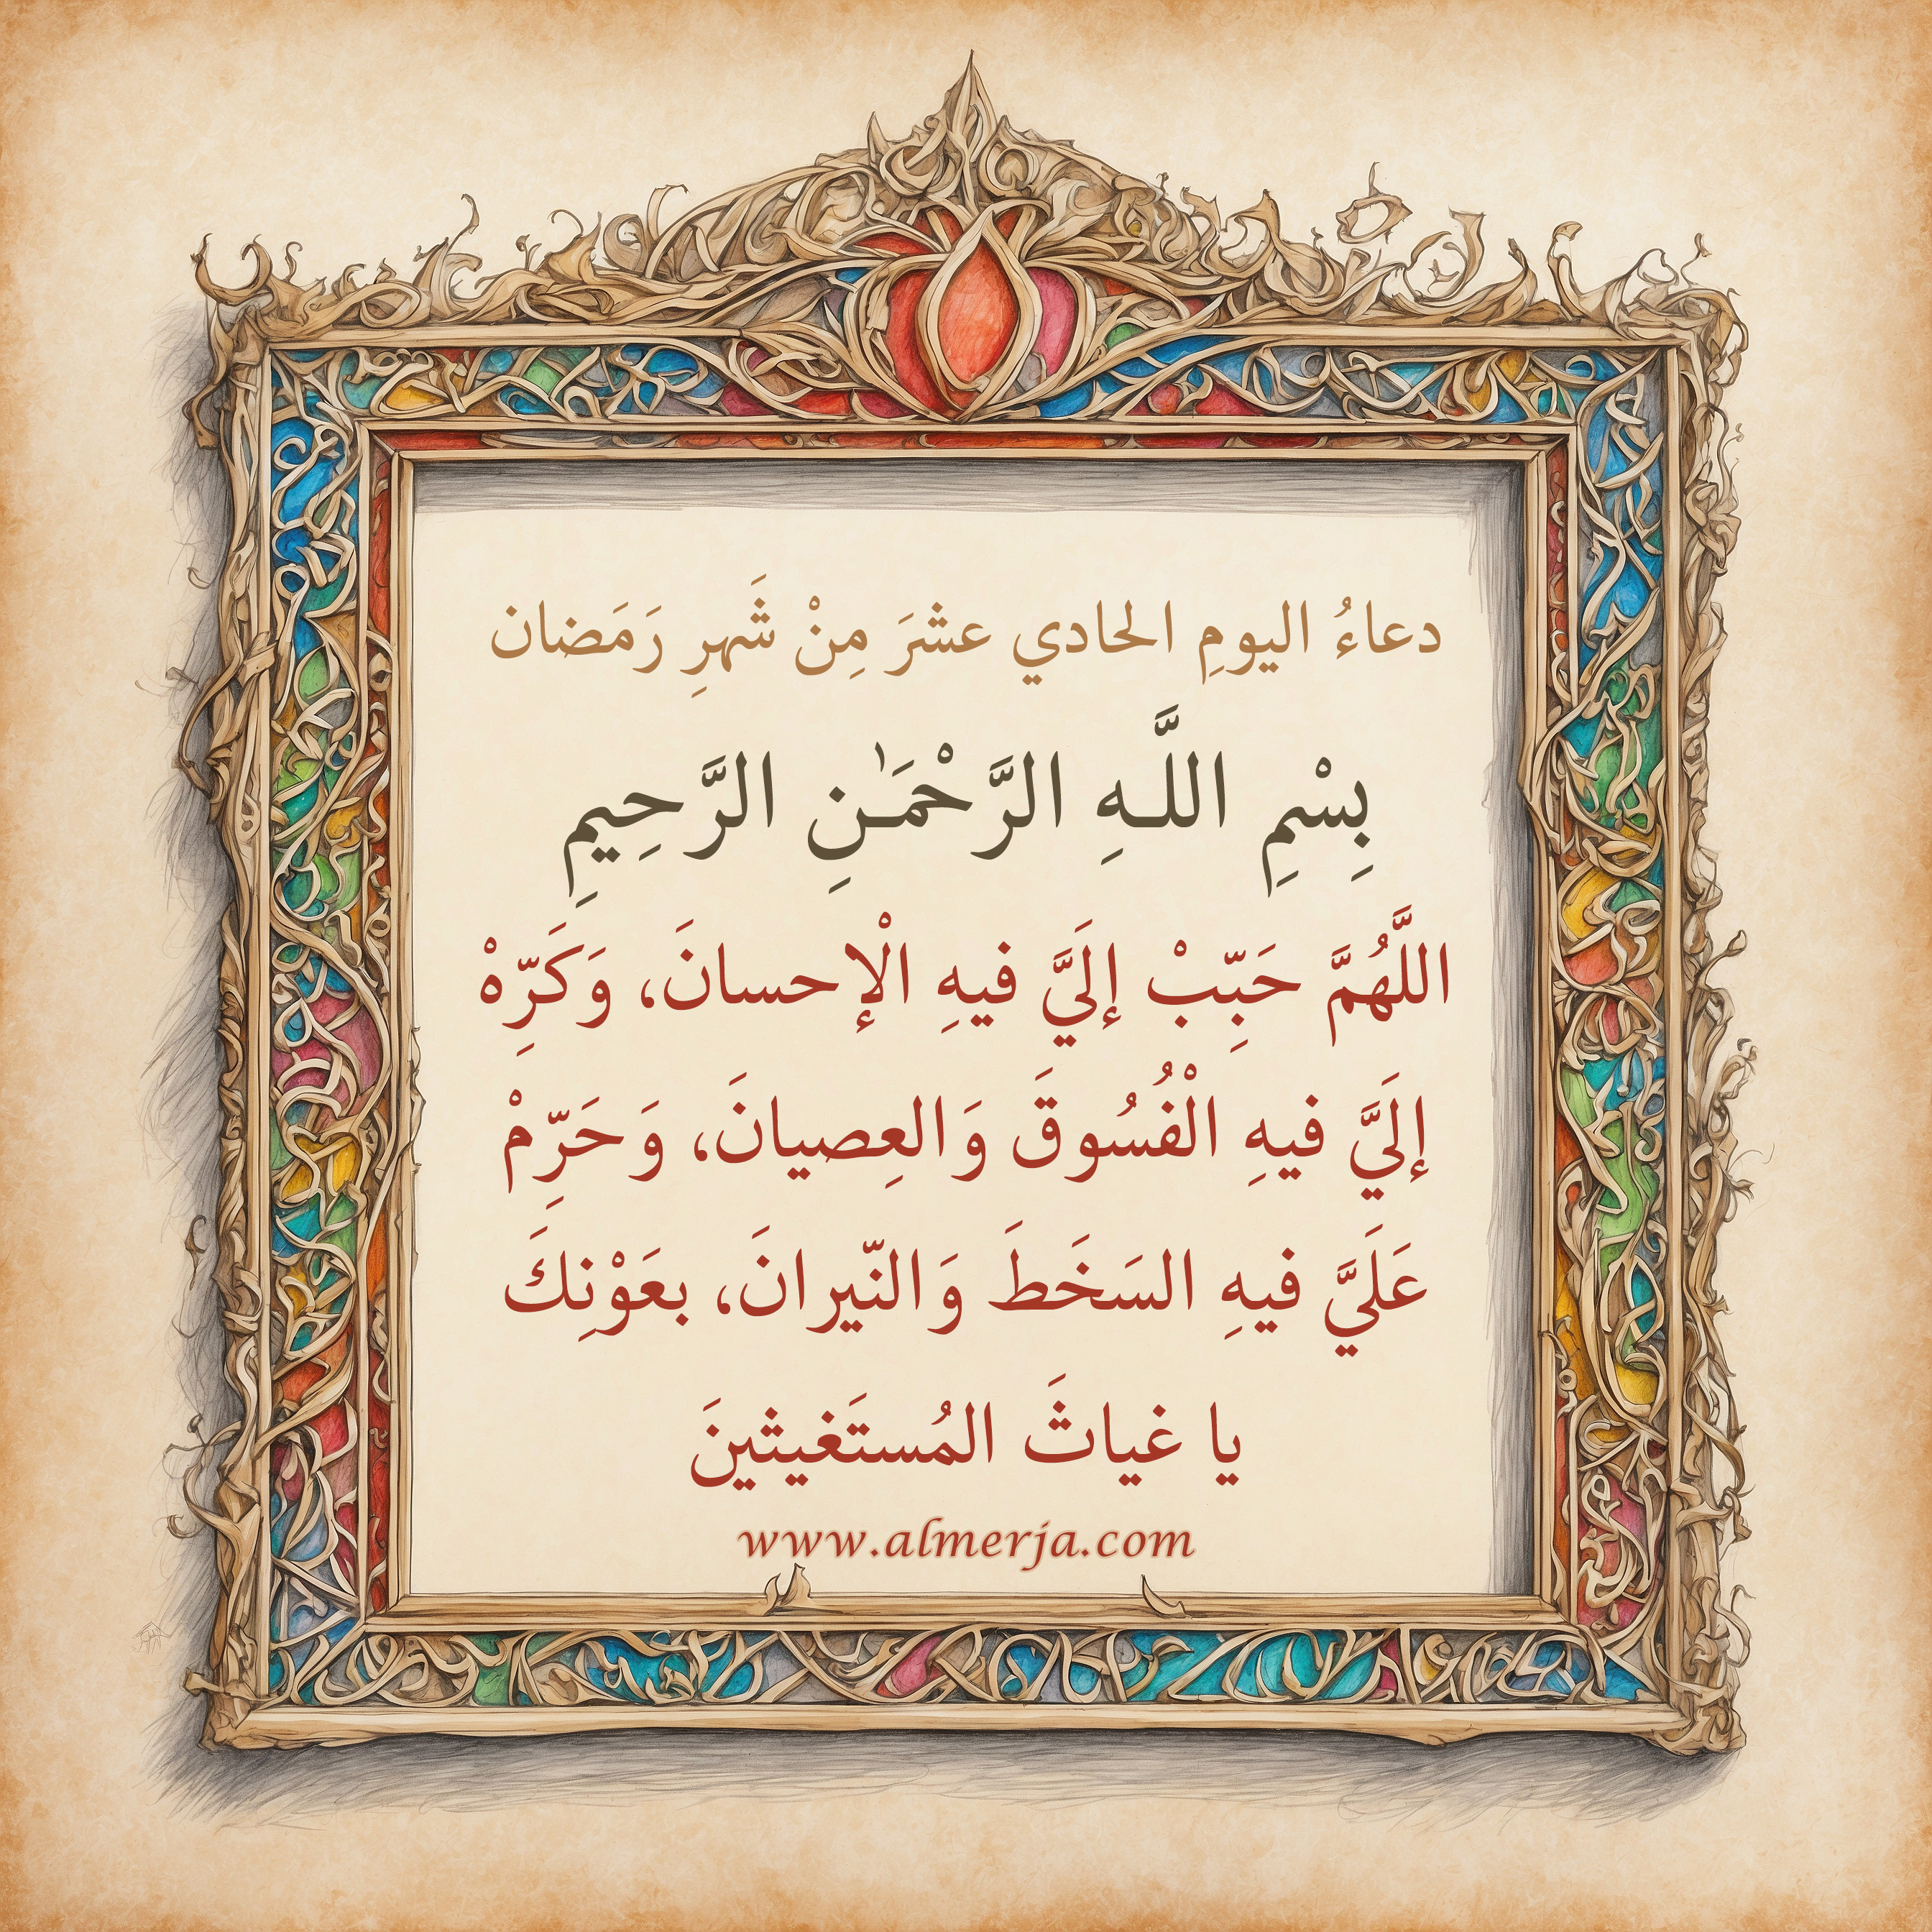 دعاءُ اليومِ الحادي عشرَ مِنْ شَهرِ رَمَضان
بِسْمِ اللَّـهِ الرَّحْمَـٰنِ الرَّحِيمِ
اللَّهُمَّ حَبِّبْ إلَيَّ فيهِ الْإحسانَ، وَكَرِّهْ
إلَيَّ فيهِ الْفُسُوقَ وَالعِصيانَ، وَحَرِّمْ
عَلَيَّ فيهِ السَخَطَ وَالنّيرانَ، بعَوْنِكَ
يا غياثَ المُستَغيثينَ
www.almerja.com